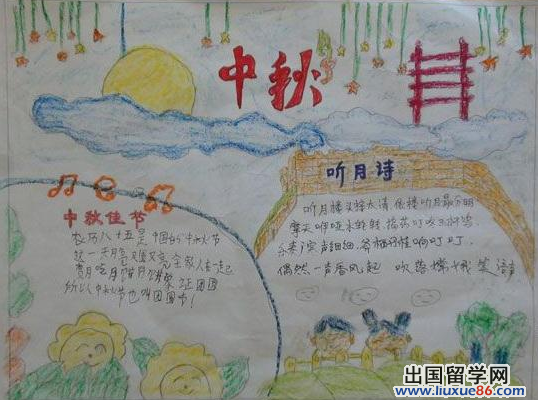 中秋
听月诗
听月楼头接太清 依楼听月最分明
摩天咿哑冰轮转 捣药叮咚玉杵
声细细 响叮叮
偶然一声香风起 吹落嫦娥笑语声
中秋佳节
农历八十五是中国的中秋节
这一天月亮又圆 全家人在一起
赏月吃月饼 团圆
所以中秋节也叫团圆节!
出国留学网
www.liuxue86.com